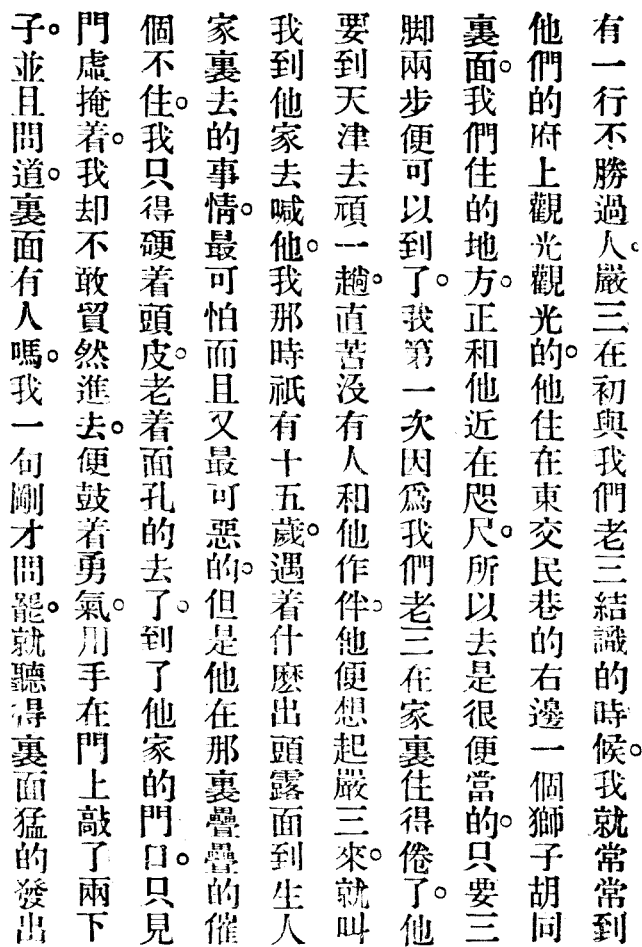 有一行不勝過人。嚴三在初與我們老三結識的時候。我就常常到
他們的府上觀光觀光的。他住在東交民巷的右邊一個獅子胡同
裏面。我們住的地方。正和他近在咫尺。所以去是很便當的。只要三
脚兩步便可以到了。我第一次因爲我們老三在家裏住得倦了。他
要到天津去頑一趟。直苦沒有人和他作伴。他便想起嚴三來。就叫
我到他家去喊他。我那時祇有十五歲。遇着什麽出頭露面到生人
家裏去的事情。最可怕而且又最可惡的。但是他在那裏疊疊的催
個不住。我只得硬着頭皮。老着面孔的去了。到了他家的門口。只見
門虛掩着。我却不敢貿然進去。便鼓着勇氣。用手在門上敲了兩下
子。並且問道。裏面有人嗎。我一句剛才問罷。就聽得裏面猛的發出